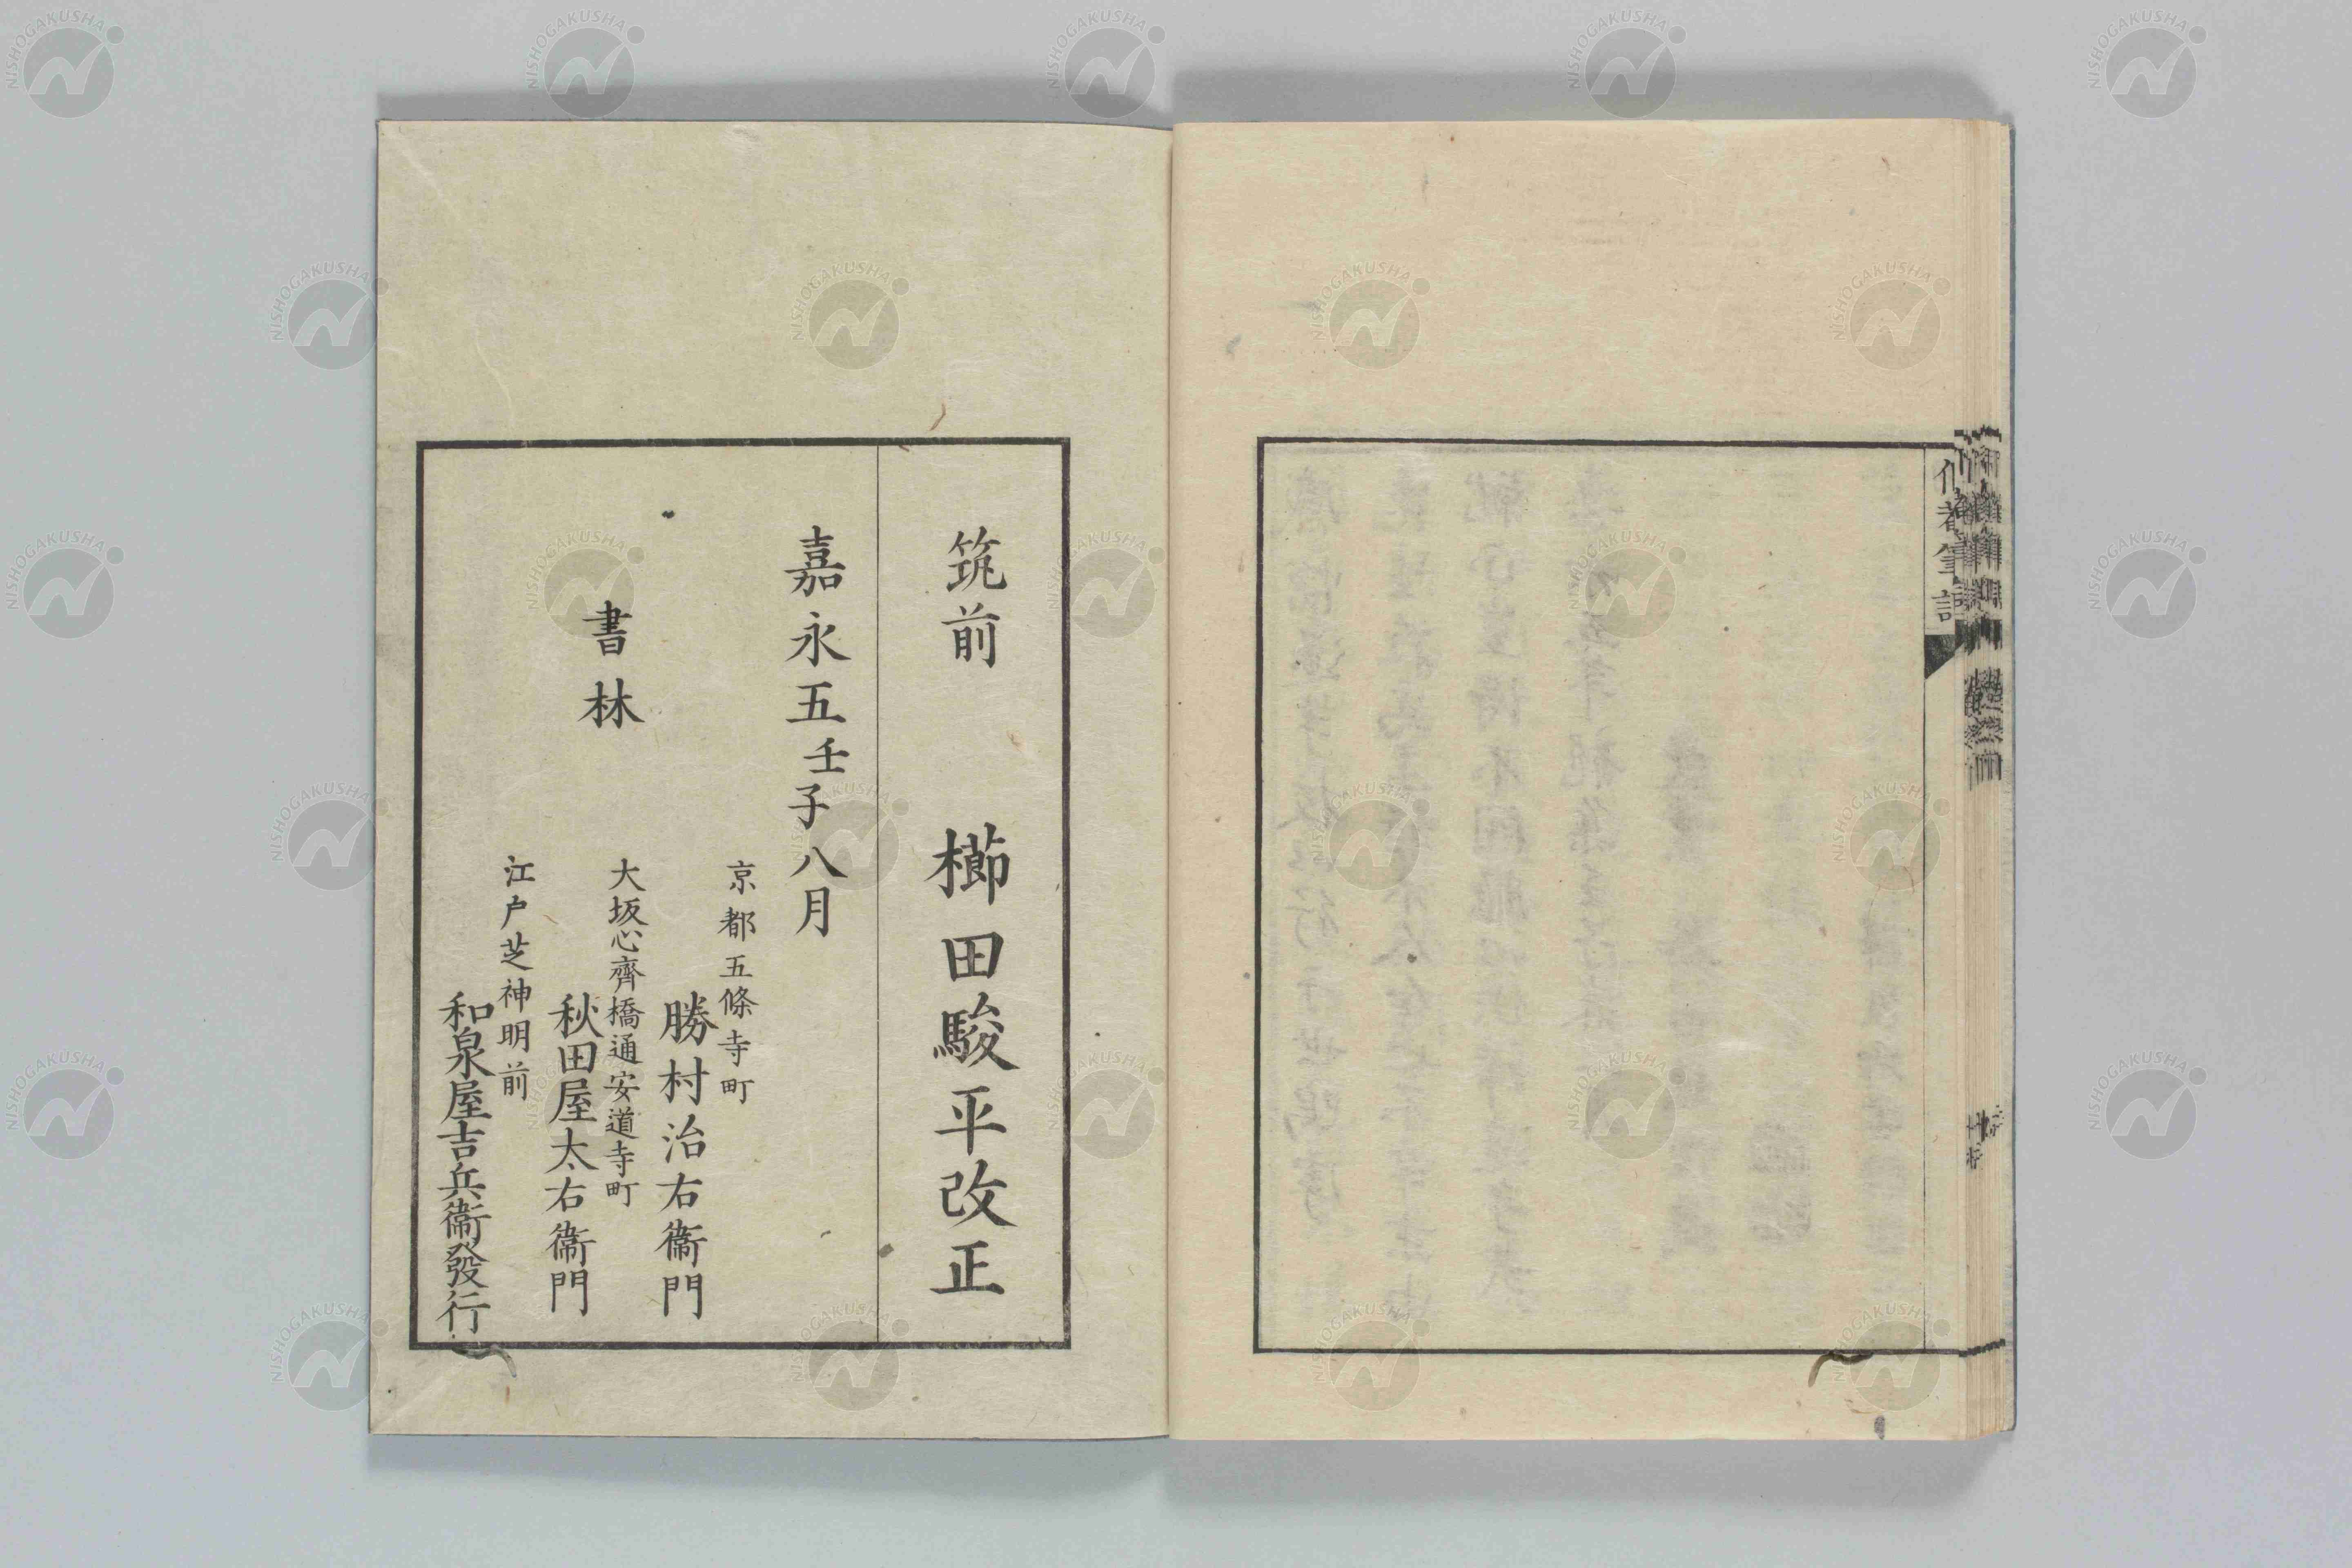 筑前　櫛田駿平改正
嘉永五壬子八月
書林
京都五條寺町
勝村治右衞門
大坂心齊橋通安道寺町
秋田屋太右衞門
江戸芝神明前
和泉屋吉兵衞發行
NISHOGAKUSHA